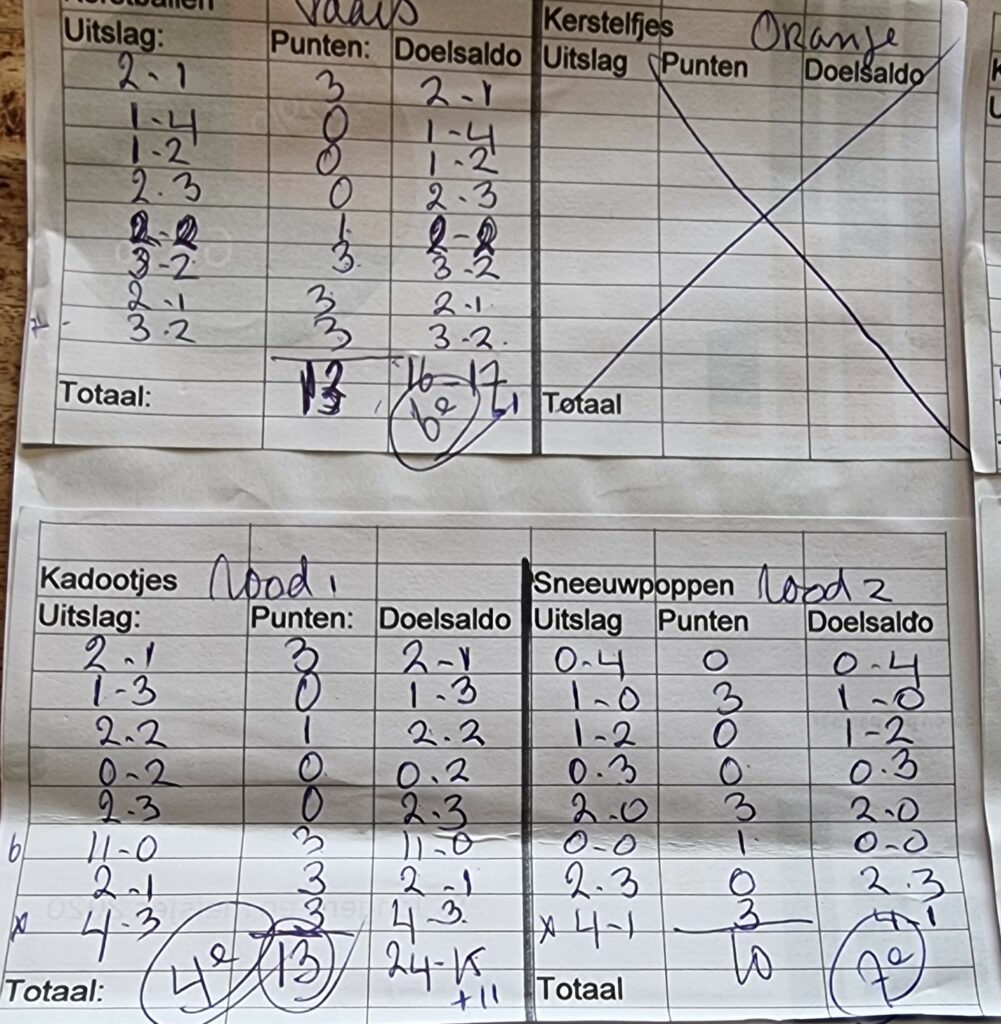 Kerstballen
Uitslag: Punten: Doelsaldo
2-1 3 2-1
1-4 0 1-4
1-2 0 1-2
2-3 0 2-3
2-2 1 2-2
3-2 3 3-2
2-1 3 2-1
3-2 3 3-2
13 16-17
Totaal: 6e -1
Kerstelfjes Oranje
Uitslag Punten Doelsaldo
Totaal
Kadootjes Rood 1
Uitslag: Punten: Doelsaldo
2-1 3 2-1
1-3 0 1-3
2-2 1 2-2
0-2 0 0-2
2-3 0 2-3
6 11-0 3 11-0
2-1 3 2-1
x 4-3 3 4-3
4e 13 24-15
Totaal: +11
Sneeuwpoppen Rood 2
Uitslag Punten Doelsaldo
0-4 0 0-4
1-0 3 1-0
1-2 0 1-2
0-3 0 0-3
2-0 3 2-0
0-0 1 0-0
2-3 0 2-3
x 4-1 3 4-1
10 7e
Totaal